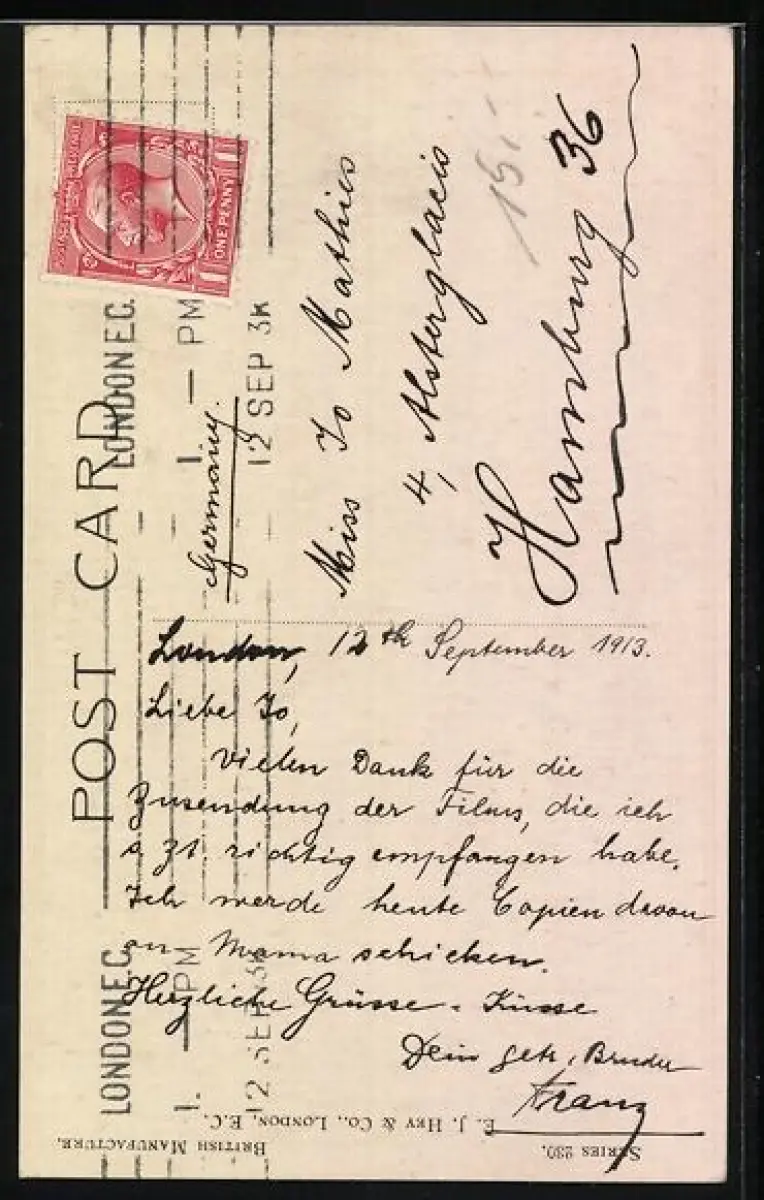 POST CARD
LONDON E.C.
1. — PM
12 SEP 3K
ONE PENNY
Germany.
Miss Jo Mathies
4, Alsterglacis
Hamburg 36
London, 12th September 1913.
Liebe Jo,
Vielen Dank für die
Zusendung der Films, die ich
s. Zt. richtig empfangen habe.
Ich werde heute Copien davon
an Mama schicken.
Herzliche Grüsse + Küsse
Dein getr. Bruder
Franz
LONDON E.C.
1. — PM
12 SEP 3K
E. J. HEY & CO., LONDON, E.C.
BRITISH MANUFACTURE.
SERIES 230.